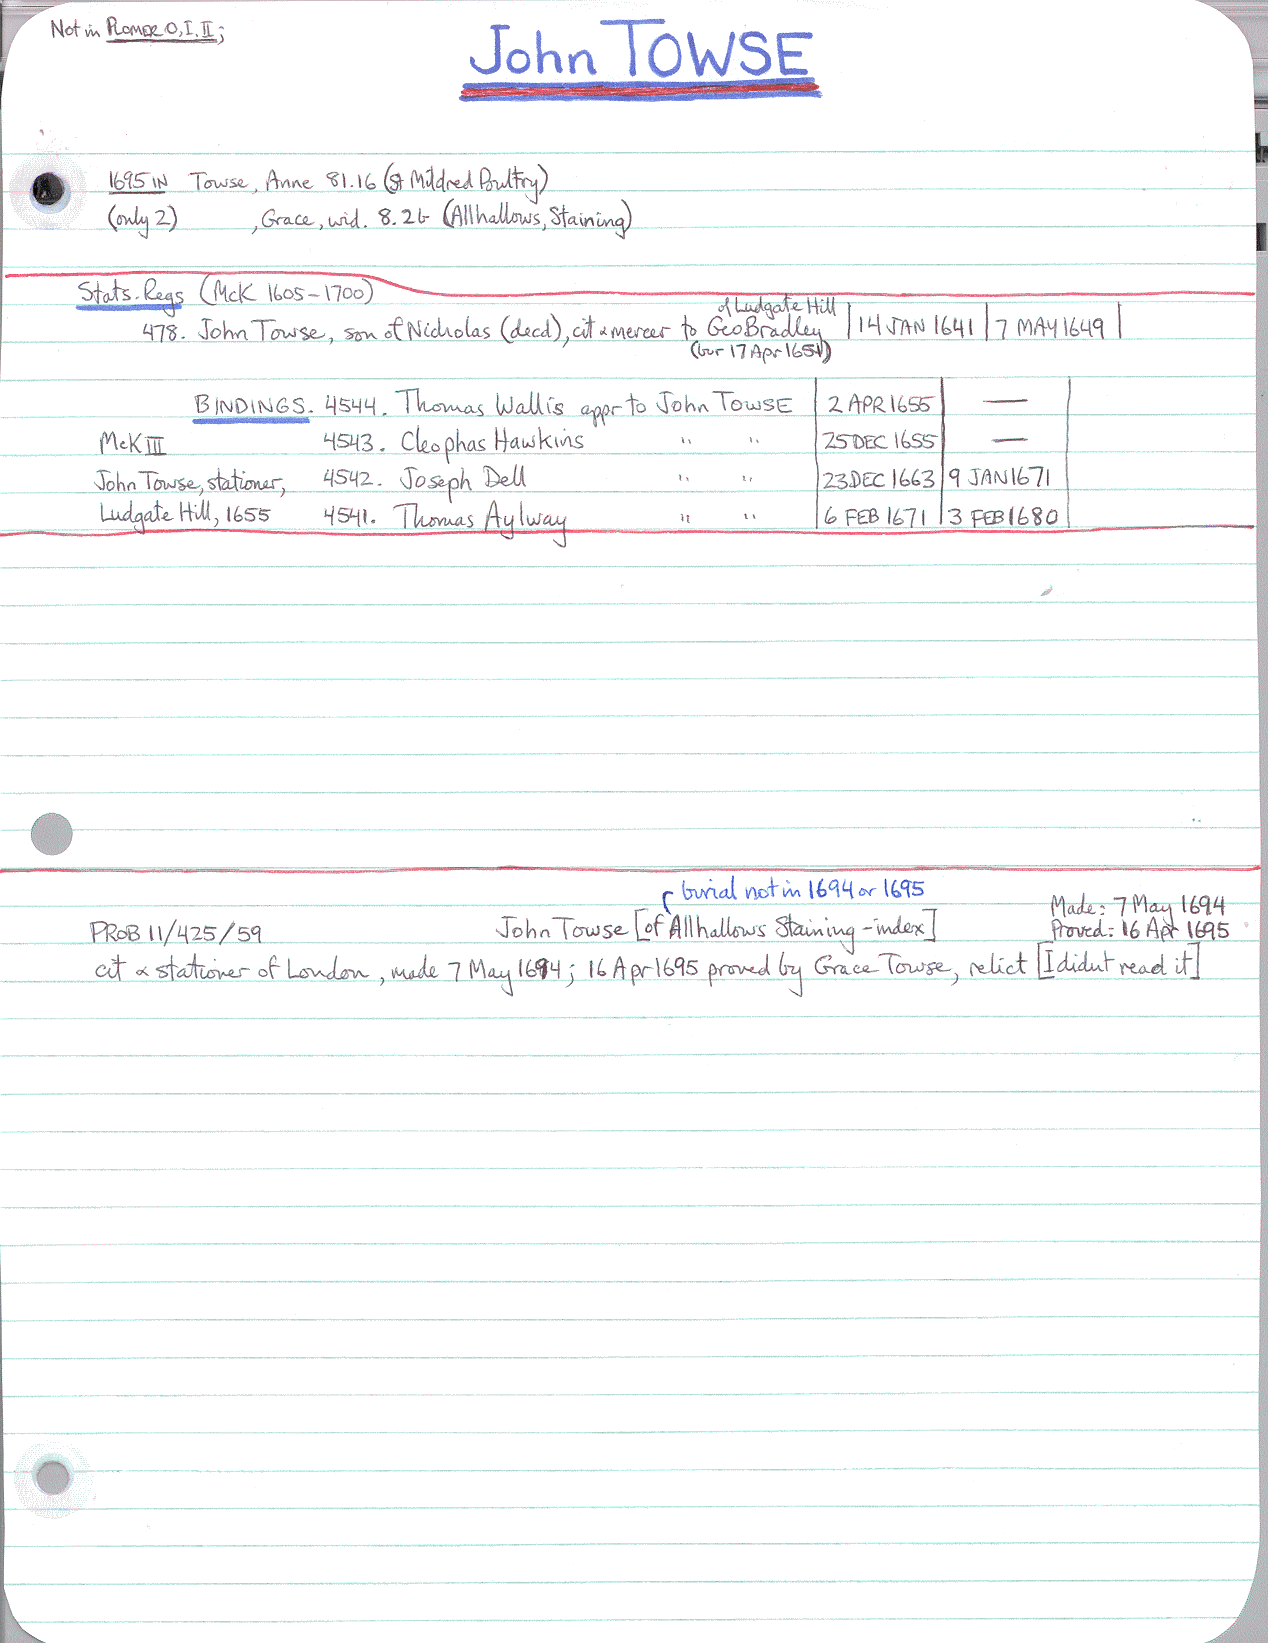 Not in PLOMER O, I, II;
John TOWSE
1695 IN Towse, Anne 81.16 (St Mildred Poultry)
(only 2) , Grace, wid. 8.26 (Allhallows, Staining)
Stats. Regs (McK 1605-1700)
of Ludgate Hill
478. John Towse, son of Nicholas (decd), cit & mercer to Geo Bradley | 14 JAN 1641 | 7 MAY 1649 |
(bur 17 Apr 1651)
BINDINGS. 4544. Thomas Wallis appr to John TOWSE | 2 APR 1655 | —
McK III 4543. Cleophas Hawkins " " | 25 DEC 1655 | —
John Towse, stationer, 4542. Joseph Dell " " | 23 DEC 1663 | 9 JAN 1671
Ludgate Hill, 1655 4541. Thomas Aylway " " | 6 FEB 1671 | 3 FEB 1680
burial not in 1694 or 1695
Made: 7 May 1694
PROB 11/425/59 John Towse [of Allhallows Staining - index] Proved: 16 Apr 1695
cit & stationer of London, made 7 May 1694; 16 Apr 1695 proved by Grace Towse, relict [I didnt read it]